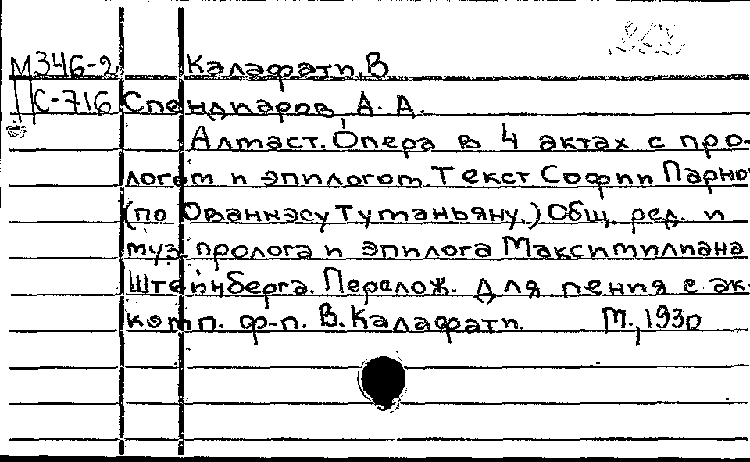 М346-2 Калафати, В
С-716 Спендиаров, А. А.
Алмаст. Опера в 4 актах с про-
логом и эпилогом. Текст Софии Парно
(по Ованнэсу Туманьяну.) Общ. ред. и
муз. пролога и эпилога Максимилиана
Штейнберга. Перелож. для пения с ак-
комп. ф-п. В. Калафати. М., 1930